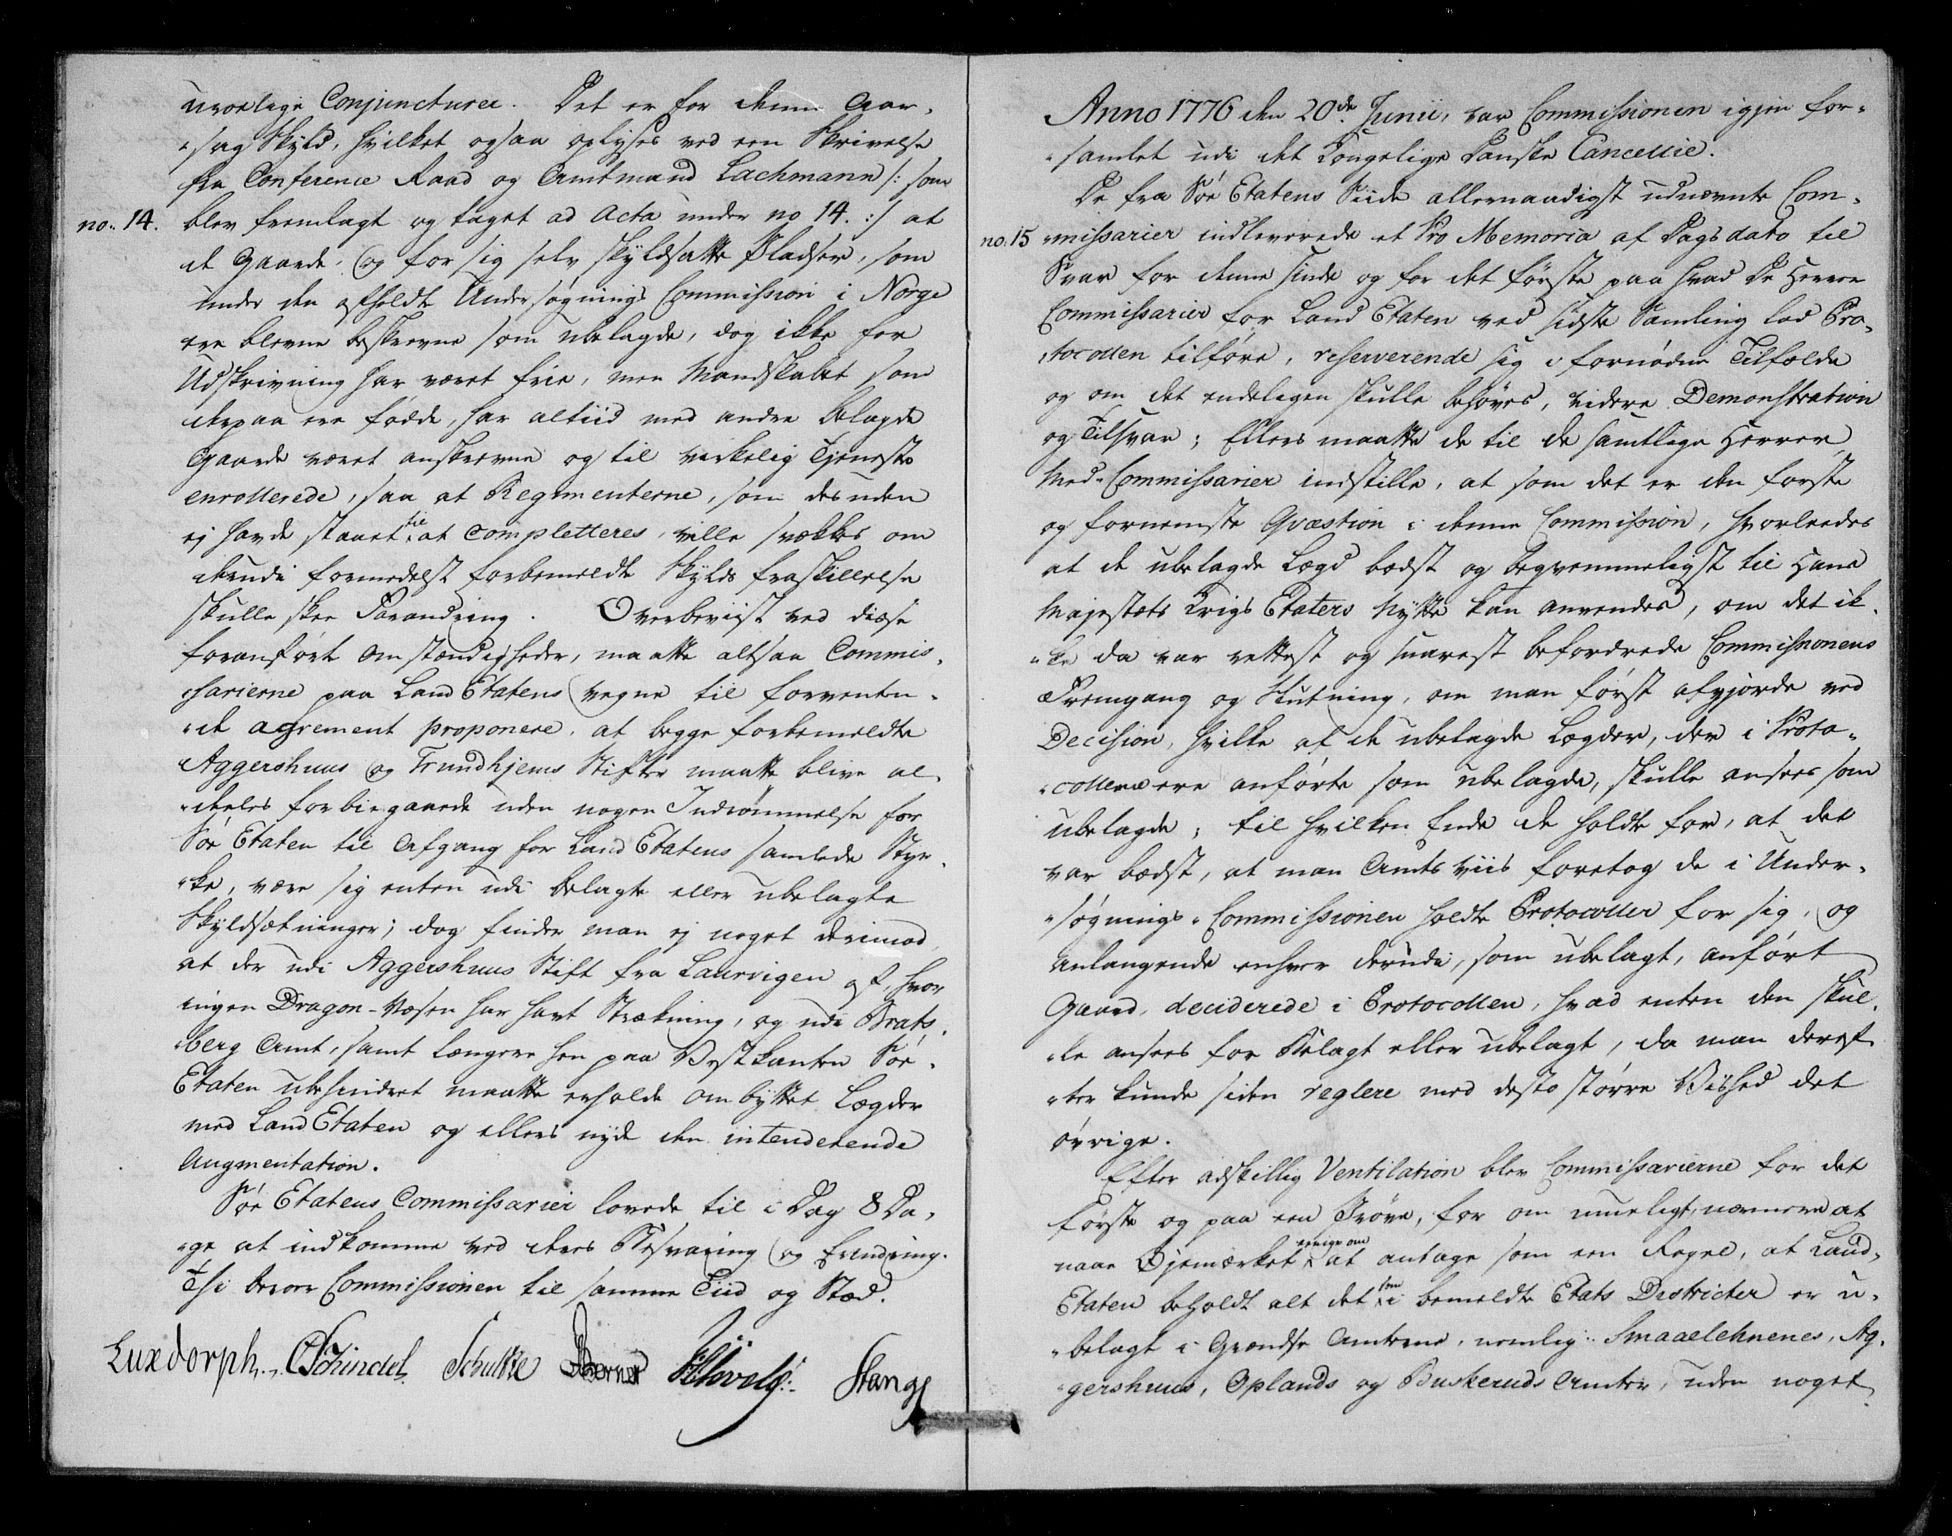 uroelige Conjuncturer. Det er for denne Aar-
sag Skyld, hvilket ogsaa oplyses ved een Skrivelse
fra Conference Raad og Amtmand Lachmann /: som
no. 14. blev fremlagt og taget ad Acta under no 14. :/ at
de Gaarde og for sig selv skyldsatte Pladser, som
under den afholdte Undersøgnings Commission i Norge
ere blevne beskrevne som ubelagde, dog ikke for
Udskrivning har været frie, men Mandskabet som
derpaa ere fødde, har altiid med andre belagde
Gaarde været anskrevne og til virkelig Tjeneste
enrollerede, saa at Regimenterne, som desuden
ej havde staaet til at completteres, ville svækkes om
derudi formedelst forbemeldte Skylds fraskillelse
skulle skee Forandring. Overbeviist ved disse
foranført Omstændigheder, maatte altsaa Commis-
sarierne paa Land Etatens vegne til forventen-
de agrement proponere, at begge forbemeldte
Aggershuus og Trundhjems Stifter maatte blive al-
deles forbiegaaede uden nogen Indrømmelse for
Søe Etaten til Afgang for Land Etatens samlede Styr-
ke, være sig enten udi belagte eller ubelagte
Skyldsætninger; dog finder man ej noget derimod
at der udi Aggershuus Stift fra Laurvigen af, hvor
ingen Dragon-Væsen har havt Strækning, og udi Brats-
berg Amt, samt længere hen paa Vestkanten Søe-
Etaten ubehindret maatte erholde ombyttet Lægder
med Land Etaten og ellers nyde den intenderende
Augmentation.
Søe Etatens Commissarier lovede til i Dag 8 Da-
ge at indkomme ved deres Besvaring og Erindring.
Thi beroer Commissionen til samme Tiid og Stæd.
Luxdorph. Schindel. Schultze Berner Stange
Anno 1776 den 20de Junii, var Commissionen igjen for-
samlet udi det Kongelige Danske Cancellie.
De fra Søe Etatens Siide allernaadigst udnævnte Com-
no. 15 missarier indleverede et Pro Memoria af Dags dato til
Svar for denne sinde og for det første paa hvad De Herrer
Commissarier for Land Etaten ved sidste Samling lod Pro-
tocollen tilføre, reserverende sig i fornøden Tilfælde
og om det endeligen skulle behøves, videre Demonstration
og Tilsvar; Ellers maatte de til de samtlige Herrer
Med-Commissarier indstille, at som det er den første
og fornemste Qvæstion i denne Commission, hvorleedes
at de ubelagde Lægd bedst og begvemmeligst til Hans
Majestæts Krigs Etaters Nytte kan anvendes, om det ik-
ke da var rettest og snarest befordrede Commissionens
Fremgang og Slutning, om man først afgjorde ved
Decision, hvilke af de ubelagde Lægder, der i Proto-
collerne ere anførte som ubelagde, skulle ansees som
ubelagde; til hvilken Ende de holdte for, at det
var bedst, at man Amts viis foretog de i Under-
søgnings-Commissionen holdte Protocoller for sig, og
anlangende enhver derudi, som ubelagt, anført
Gaard, deciderede i Protocollen, hvad enten den skul-
le ansees for Belagt eller ubelagt, da man deref-
ter kunde siden reglere med desto større Vished det
øvrige.
Efter adskillig Ventilation blev Commissarierne for det
første og paa een Prøve, for om mueligt, nærmere at
naae Øjemærket eenige om at antage som een Regel, at Land-
Etaten beholdt alt det som i bemeldte Etats Districter er u-
belagt i Grændse Amterne, nemlig: Smaalehnenes, Ag-
gershuus, Oplands og Buskeruds Amter, uden noget